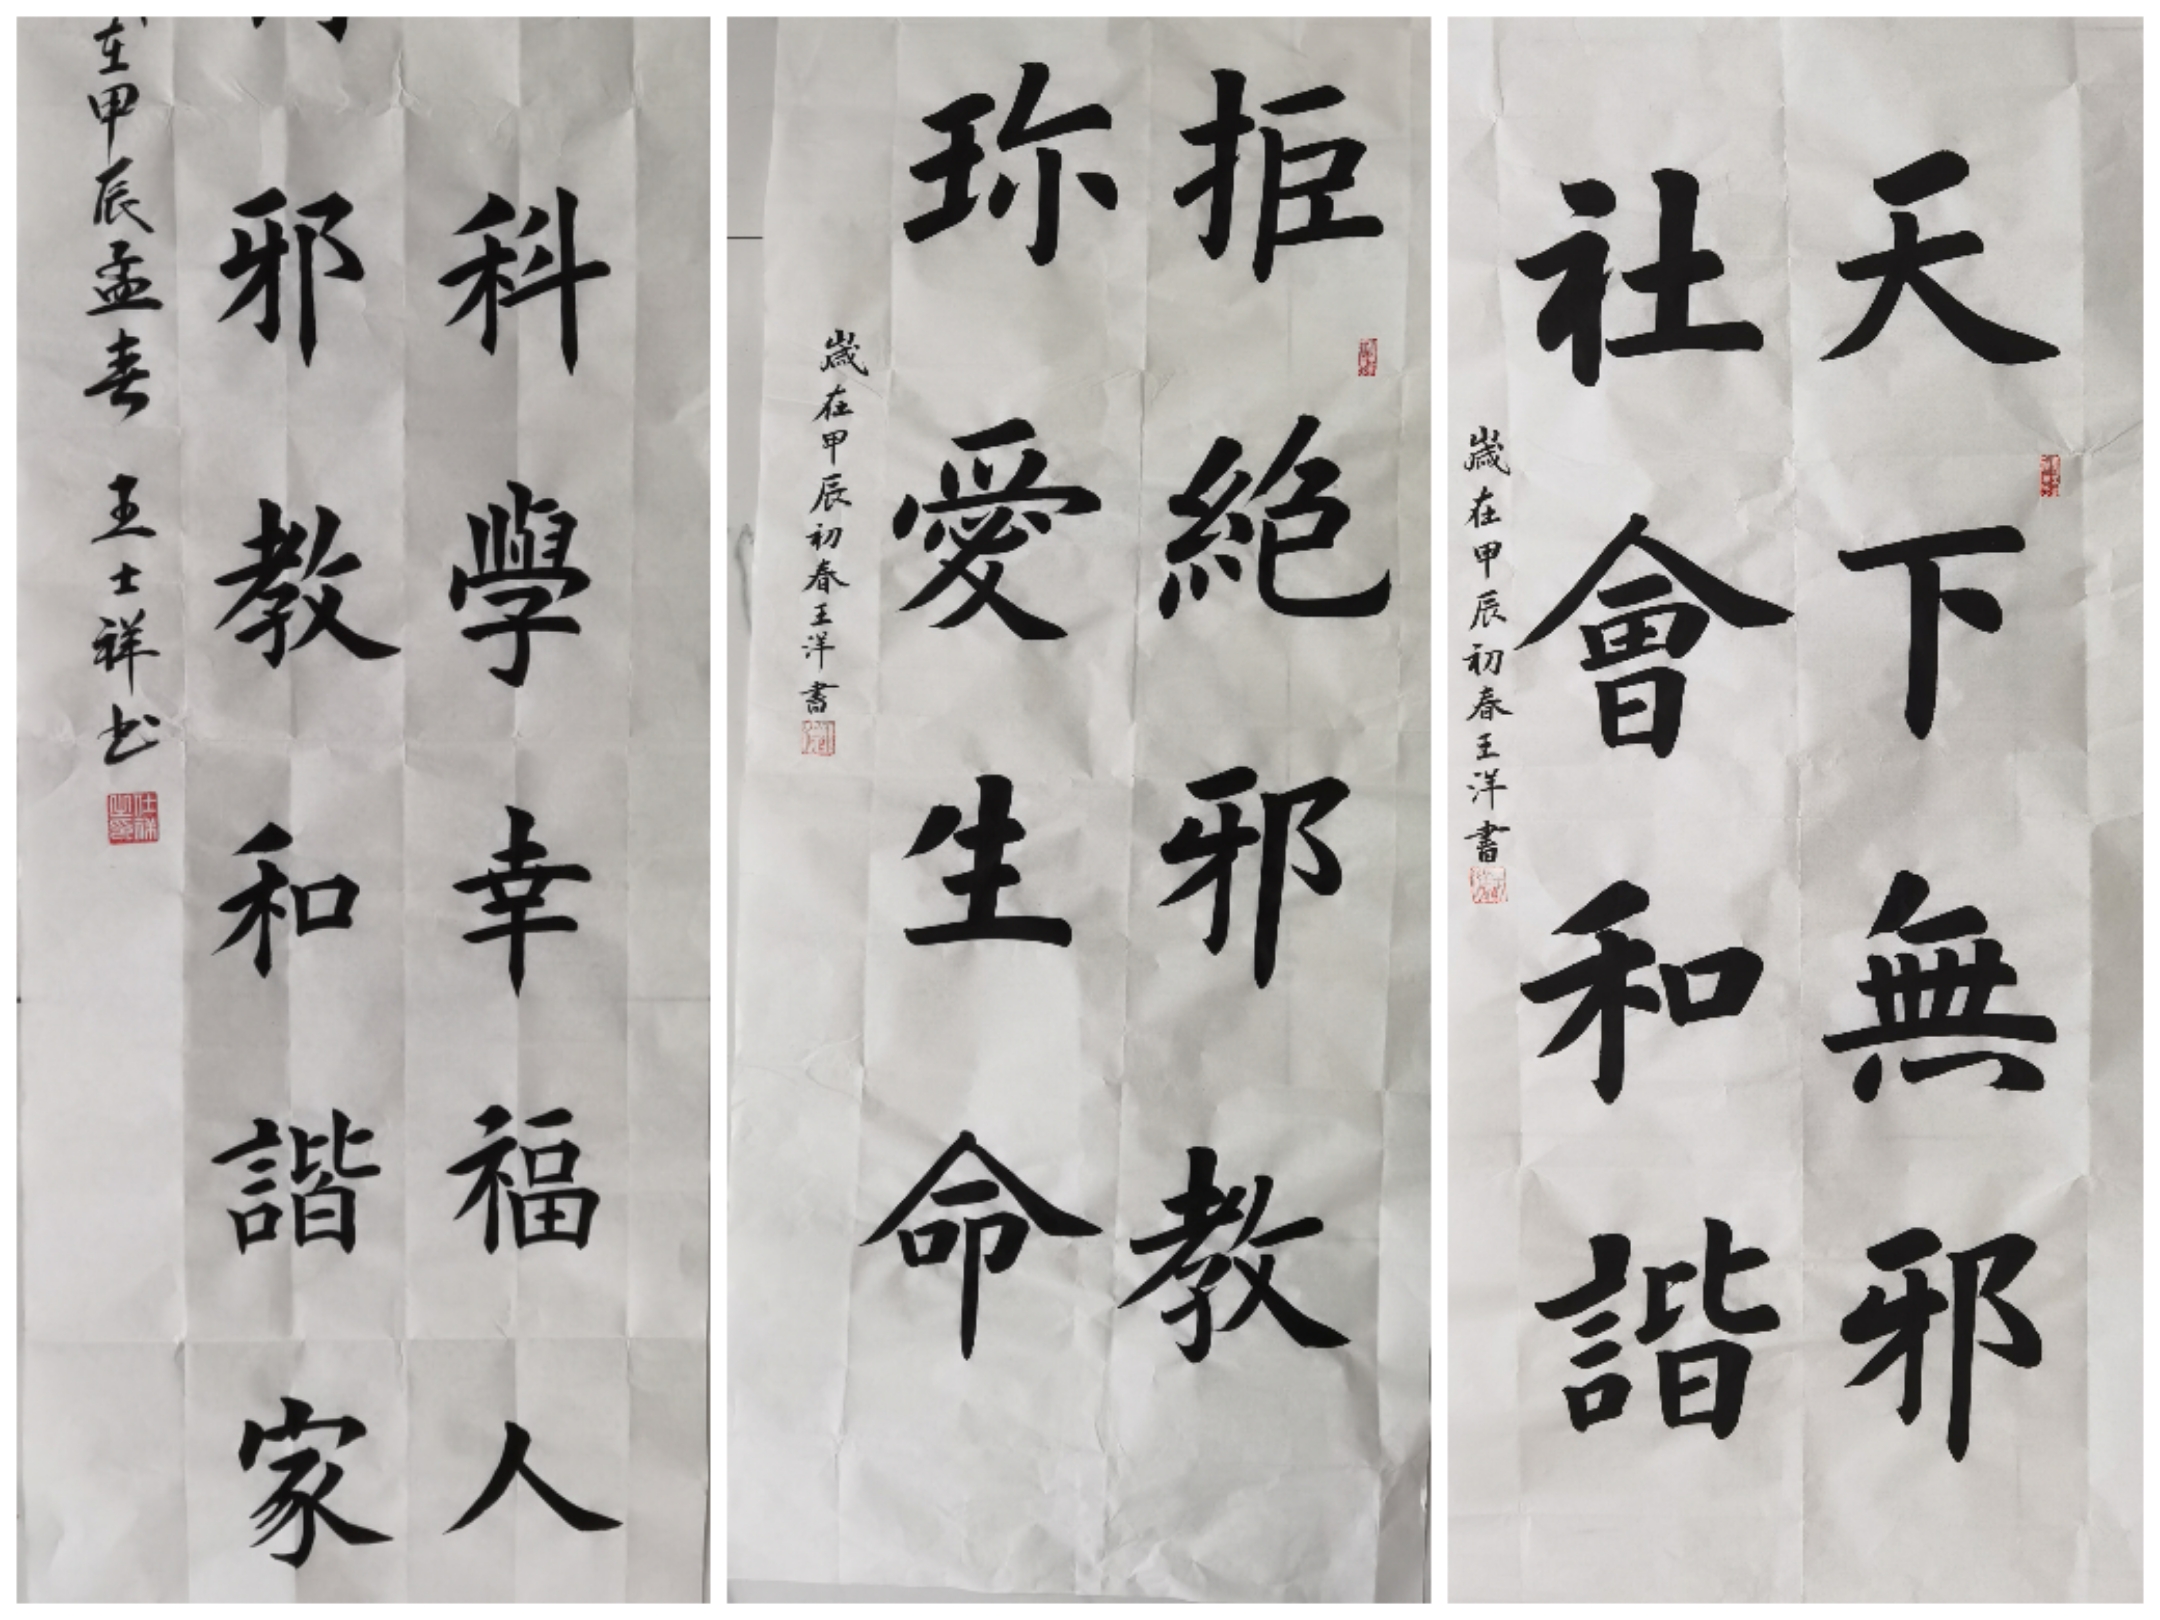 天下無邪
社會和諧
歲在甲辰初春王洋書
拒絕邪教
珎愛生命
歲在甲辰初春王洋書
科學幸福人
邪教和諧家
在甲辰孟春 王士祥书
仕祥之印